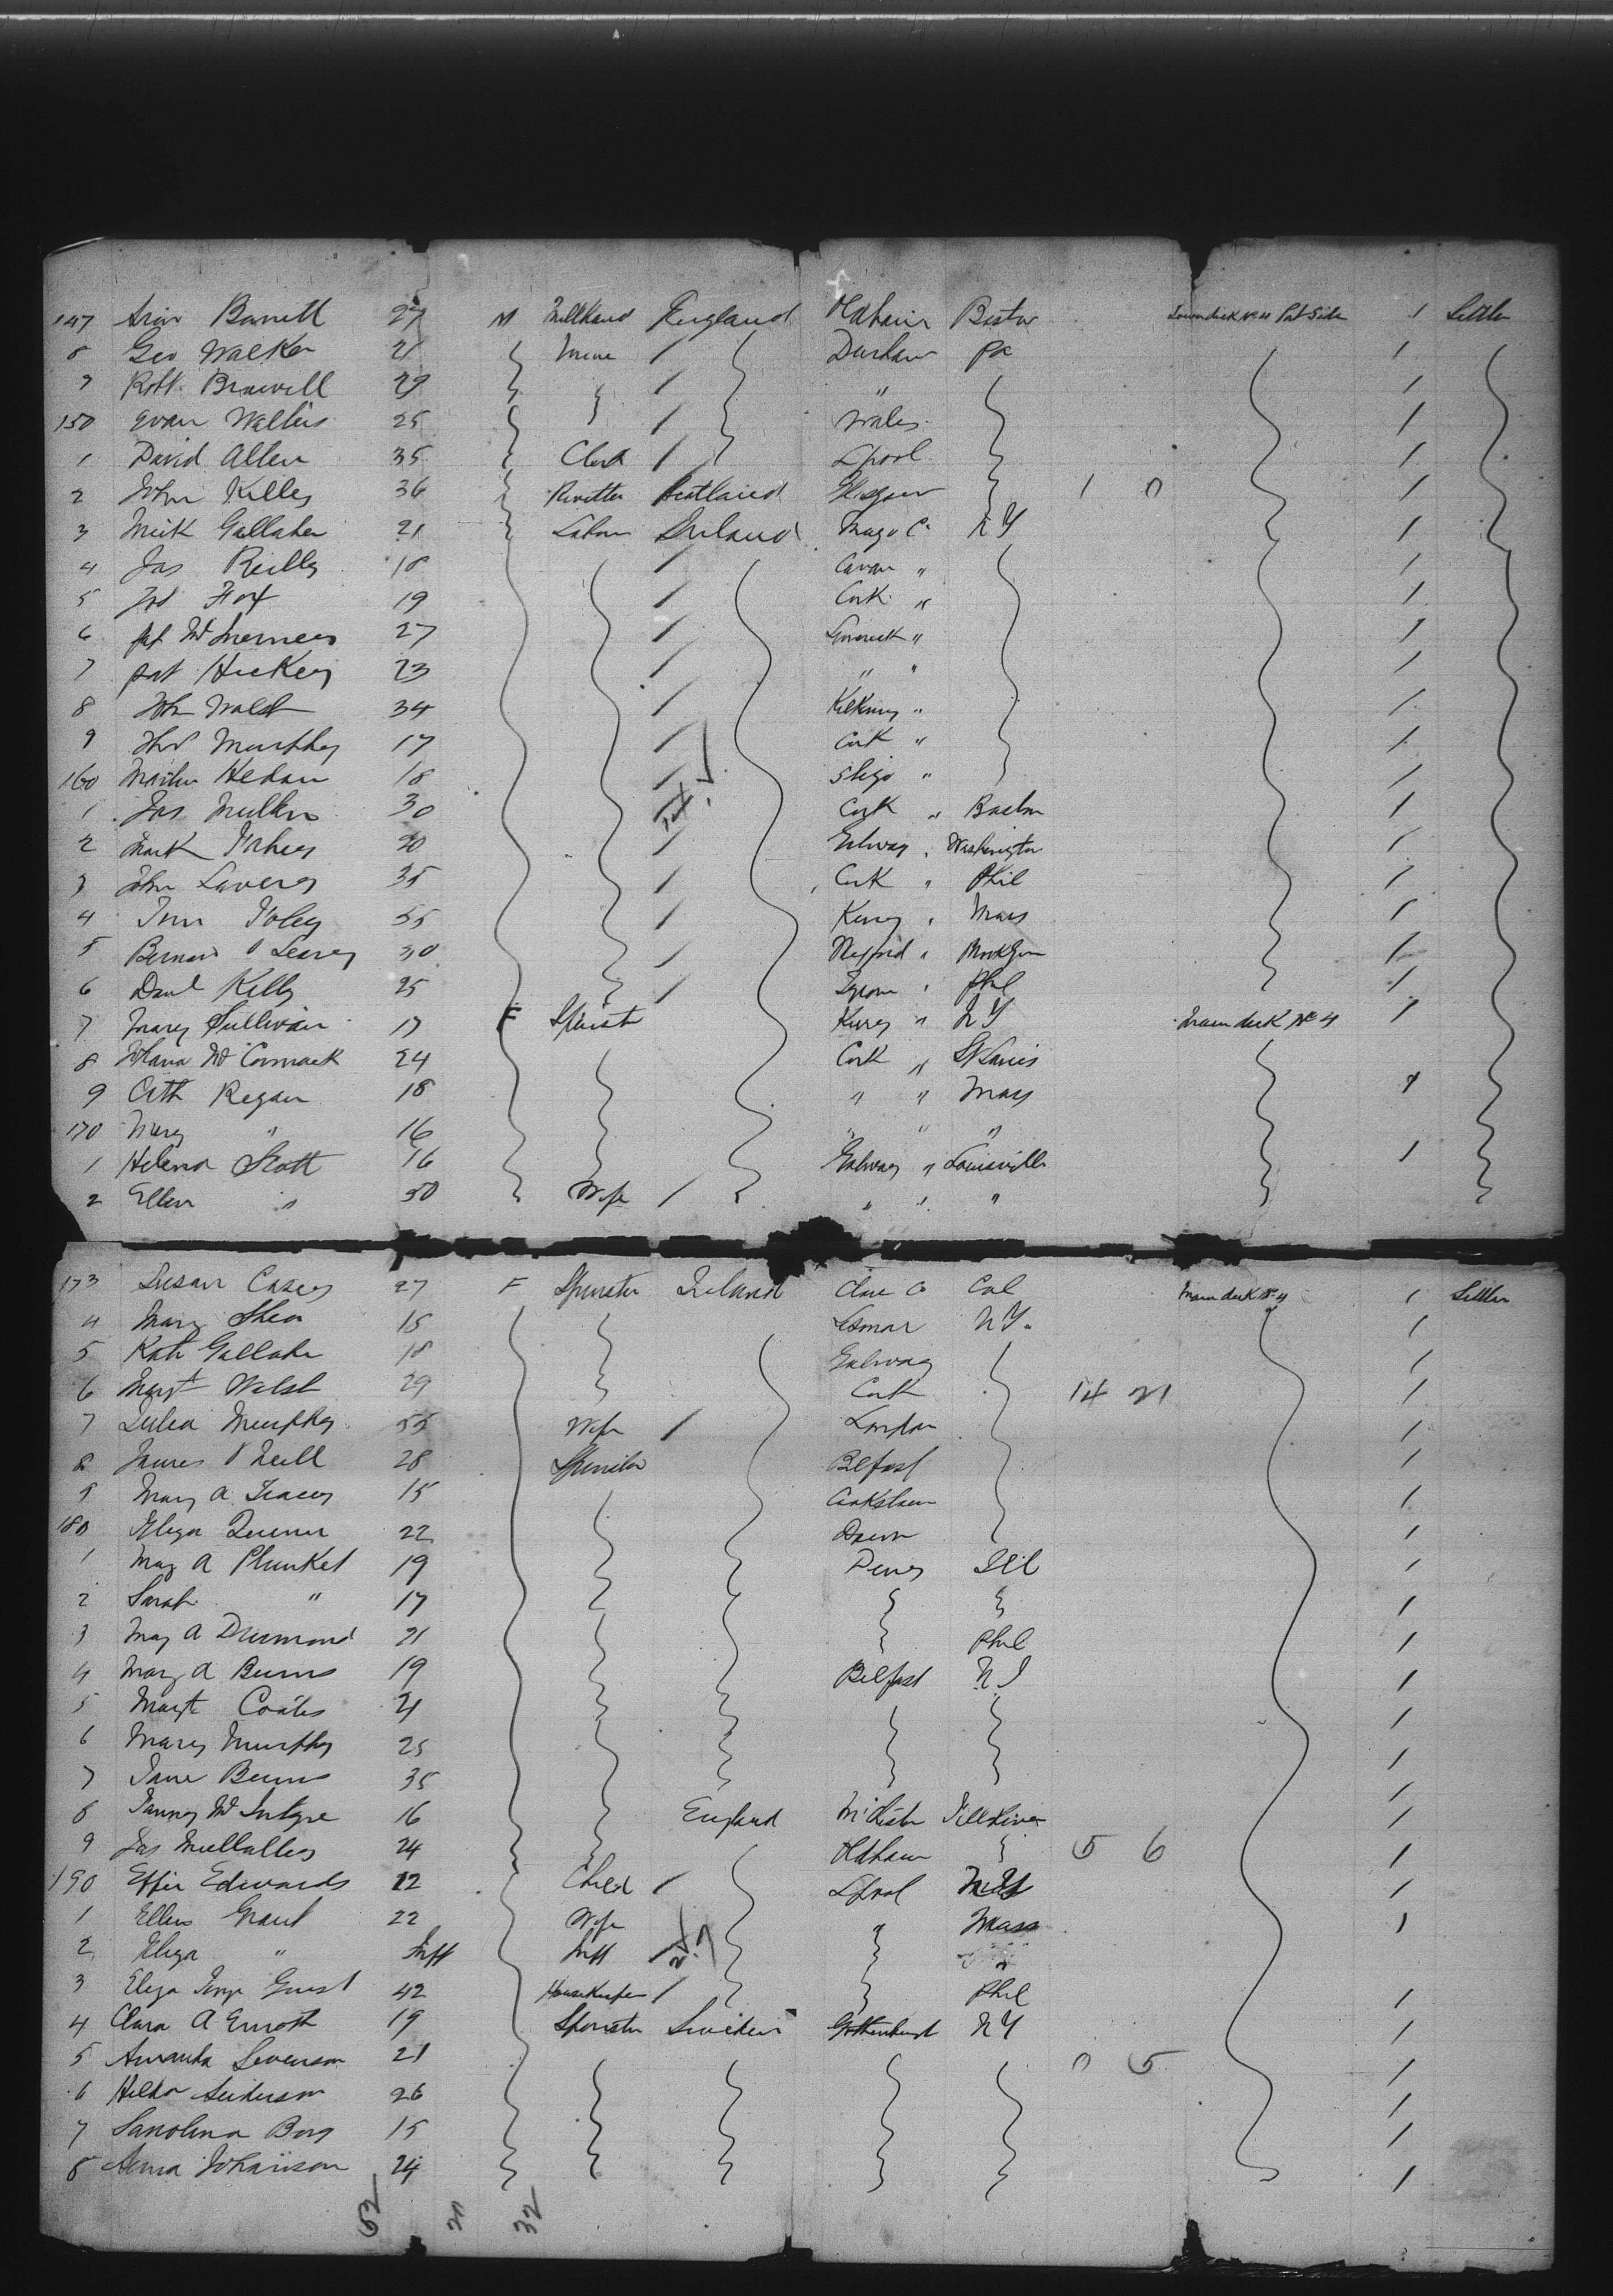 147 Barrett 27 M Millhand England Oldham Boston Lower deck No 4 Port Side 1 Settler
8 Geo Walker 21 / Durham Pa /
9 Robt. 29 / " /
150 Evan Walters 25 / Wales /
1 David Allen 35 Clerk / L'pool /
2 John Kelley 36 Rivetter Scotland Glasgow 1 0 /
3 Mick Gallaher 21 Labour Ireland Mayo Co NY /
4 Jas Reilly 18 / Cavan " /
5 Fox 19 / Cork " /
6 Pat McInerney 27 / Limerick " /
7 Pat Hickey 23 / " " /
8 John Walsh 34 / Kilkenny " /
9 Thos Murphy 17 / Cork " /
160 Martin 18 / Sligo " /
1 Jas 30 Cork " Boston /
2 Mark Fahey 20 / Galway " Washington /
3 John Lavery 35 / Cork " Phil /
4 Foley 55 / Kerry " Mass /
5 Bernard O Leary 30 / Wexford " Brooklyn /
6 Danl Kelly 25 / Tyrone " Phil /
7 Mary Sullivan 17 F Spinster Kerry " NY Main deck No 4 /
8 McCormack 24 Cork " St Louis
9 Cath Regan 18 " " Mass 1
170 Mary " 16 " " "
1 Helena Scott 16 Galway " Louisville /
2 Ellen " 50 Wife / " " "
173 Susan Casey 27 F Spinster Ireland Clare Co Cal Main deck No 4 1 Settler
4 Mary Shea 18 NY. /
5 Kate Gallaher 18 Galway /
6 Margt Walsh 29 Cork 14 21 /
7 Julia Murphy 55 Wife / /
8 O Neill 28 Spinster Belfast /
9 Mary A Tracey 15 Cookstown /
180 Eliza 22 /
1 Mary A Plunket 19 Derry Ill /
2 Sarah " 17 /
3 Mary A Drumond 21 Phil /
4 Mary A Burns 19 Belfast N.J /
5 Margt Coates 21 /
6 Mary Murphy 25 /
7 Jane Burns 35 /
8 Fanny McIntyre 16 England /
9 Jas Mullalley 24 Oldham 5 6 /
190 Effie Edwards 12 Child / L'pool NY /
1 Ellen Grant 22 Wife " Mass /
2 Eliza " Inft Inft
3 Eliza Guest 42 Housekeeper / Phil /
4 Clara A 19 Spinster Sweden NY /
5 Amanda 21 0 5 /
6 Hilda 26 /
7 Borg 15 /
8 Johanson 24 /
52 20 32